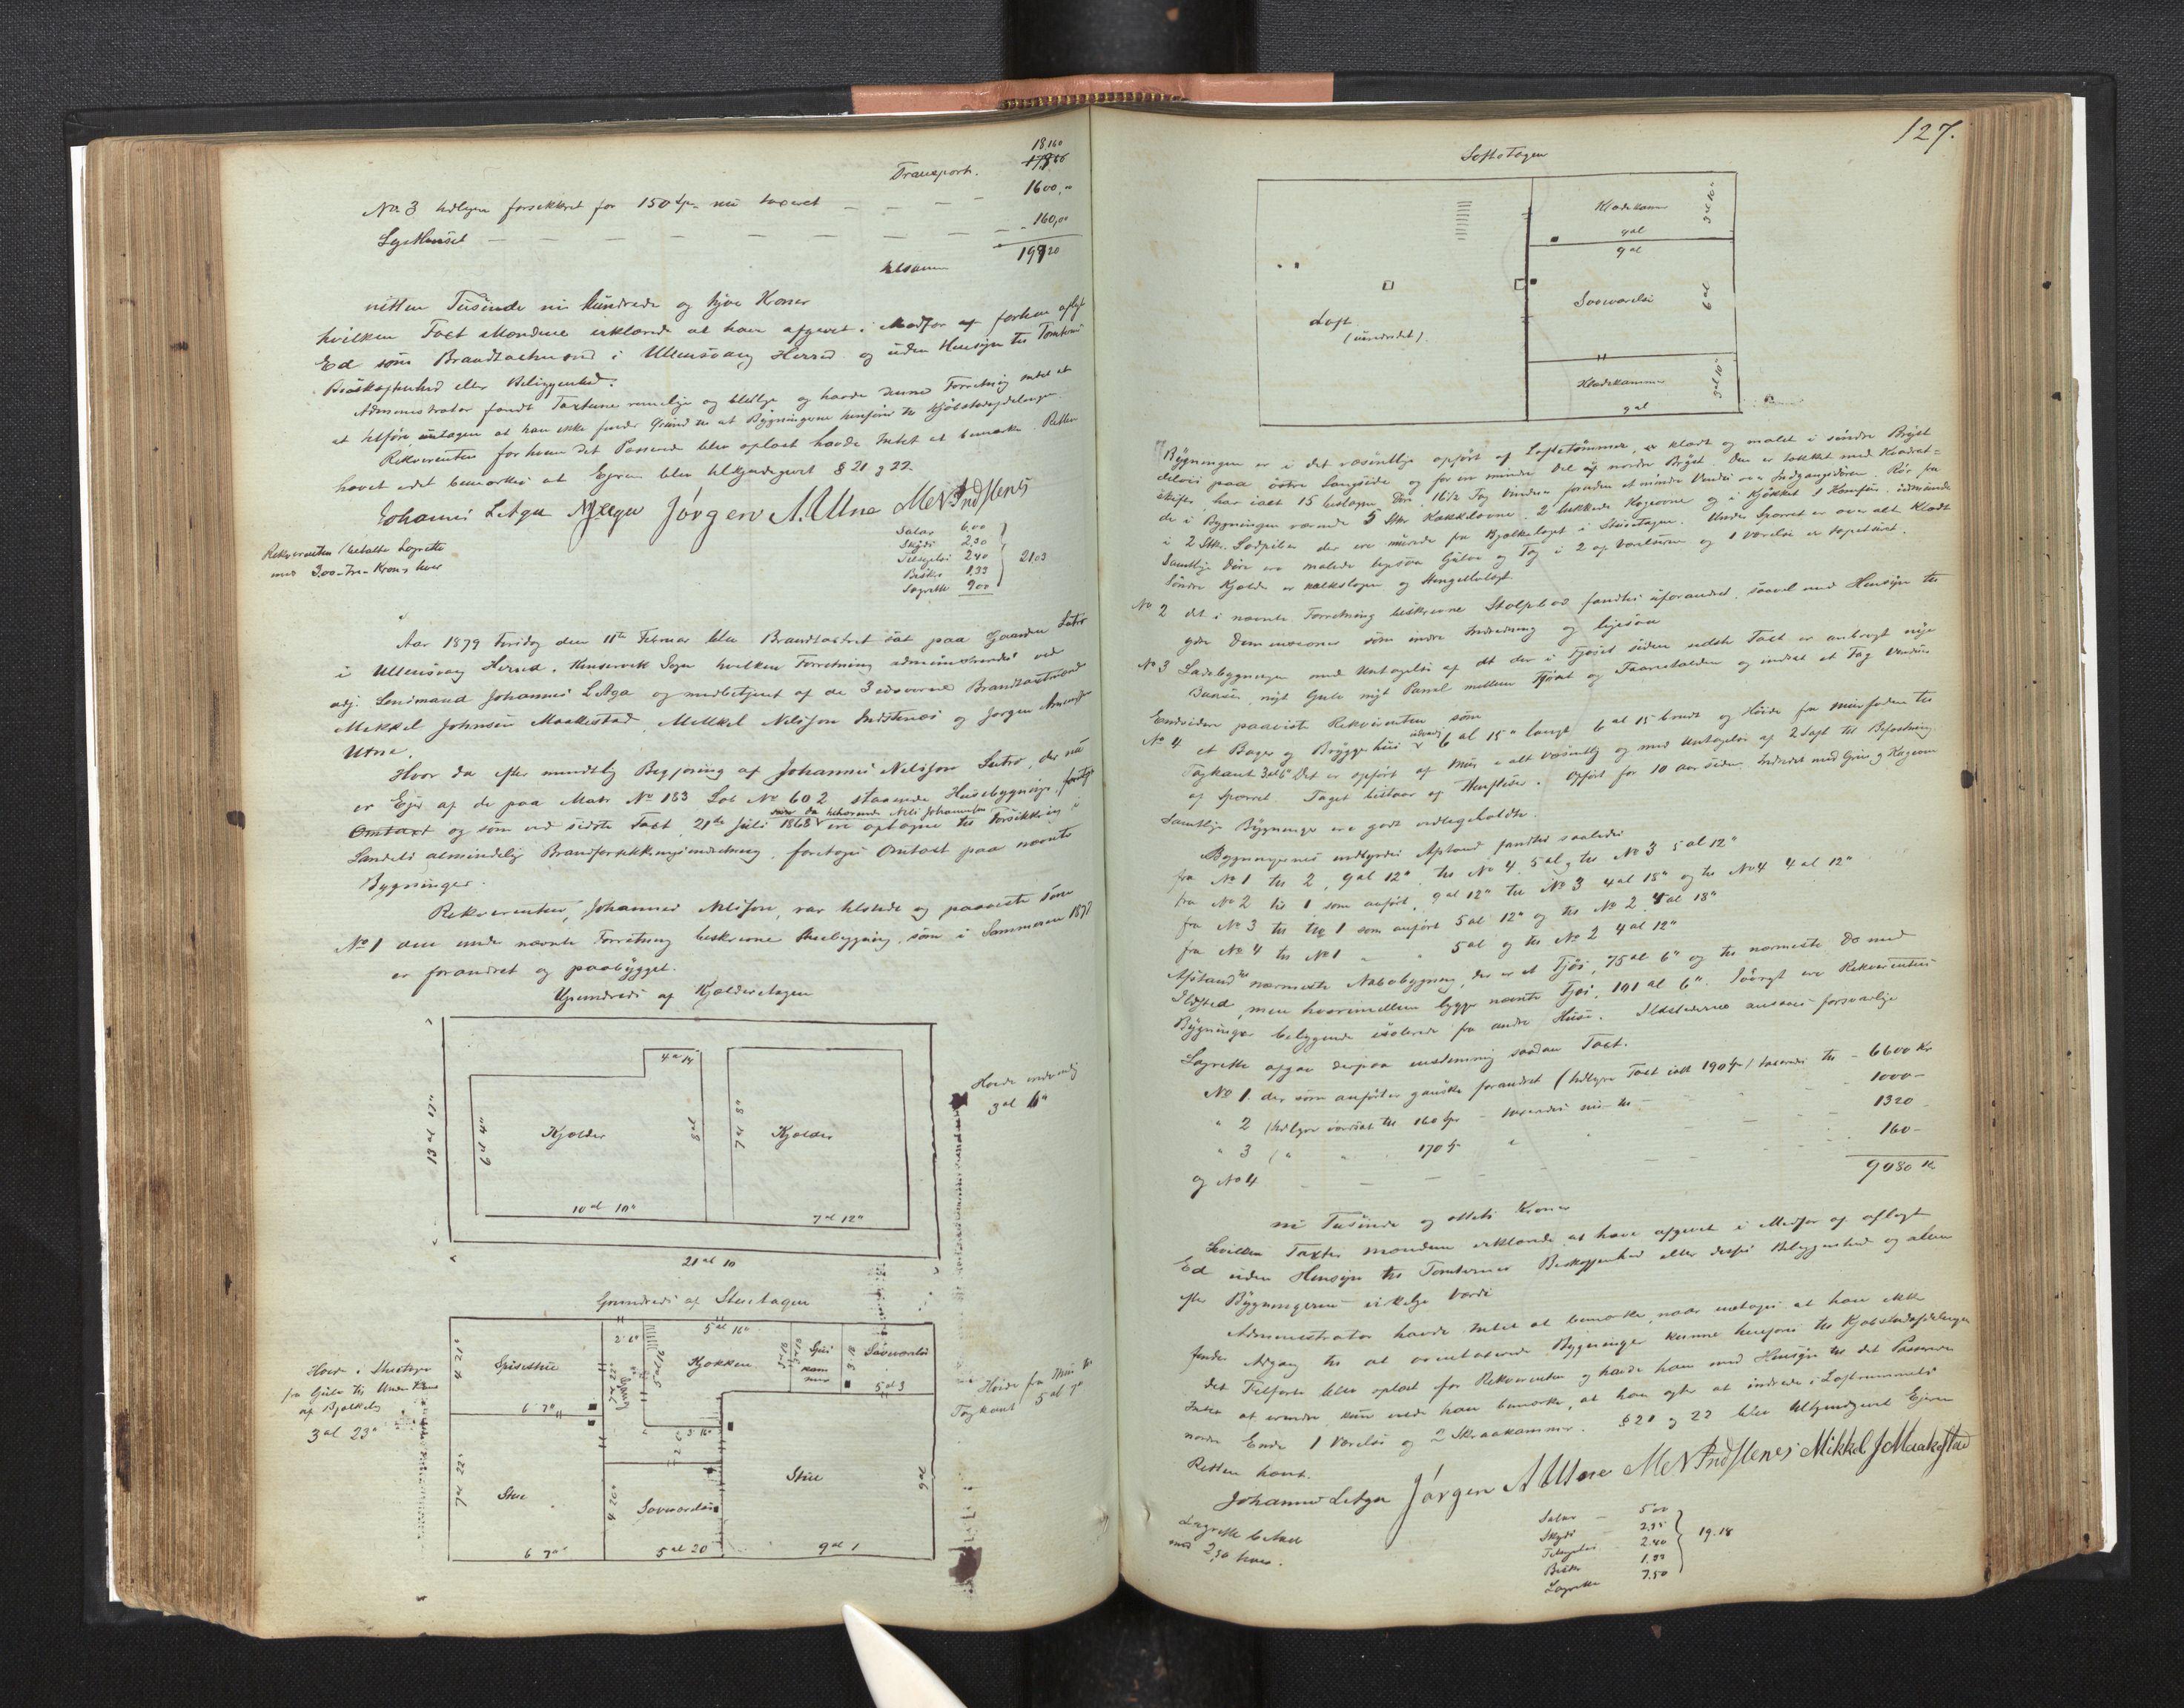 Transport. 18,160
No 3 tidligere forsikkret for 150 Spd nu taxeret — — — 1600,"
— — — — — — — — 160,00
tilsammen 19920
nitten Tusinde ni hundrede og tyve Kroner
hvilken Taxt Mændene erklærede at have afgivet i Medfør af forhen aflagt
Ed som Brandtaxtmænd i Ullensvang Herred og uden Hensyn til Tomternes
Beskaffenhed eller Beliggenhed.
Administrator fandt Taxterne rimelige og billige og havde denne Forretning intet at
at tilføre, undtagen at han ikke finder Grund til at Bygningerne henføres til Kjøbstadafdelingen.
Rekvirenten for hvem det Passerede blev oplæst havde Intet at bemærke. Retten
hævet idet bemærkes at Ejeren blev tilkjendegivet § 21 og 22
Johannes L Aga Jørgen A. Utne
Salær 6,00
Skyds 2,30
Tilsigelse 2,40
Beskr. 1,33
Lagrette 9,00
21,03
Rekvirenten betalte Lagrette
med 3,00 - tre - Kroner hver
Aar 1879 Tirsdag den 11te Februar blev Brandtaxtret sat paa Gaarden Lutro
i Ullensvang Herred, Kinservik Sogn hvilken Forretning administreredes ved
adj. Lensmand Johannes L Aga og medbetjent af de 3 edsvorne Brandtaxtmænd
Mikkel Johnsen Maakestad, Mikkel Nilssen Indstenes og Jørgen Amundsen
Utne.
Hvor da efter mundtlig Begjæring af Johannes Nilssen Lutro, der nu
er Ejer af de paa Matr No 183 Løb No 602 staaende Husebygninger, foretages
Omtaxt og som ved sidste Taxt 21de Juli 1868 ere optagne til Forsikkring i
Landets almindelige Brandforsikkringsindretning, foretages Omtaxt paa nævnte
Bygninger.
Rekvirenten, Johannes Nilssen, var tilstede og paaviste som
No 1 den under nævnte Forretning beskrevne Stuebygning, som i Sommeren 1878
er forandret og paabygget.
Grundrids af Kjælderetagen
4 al 14
13 al 17"
6 al 4"
Kjælder
8 al
7 al 8"
Kjælder
10 al 10"
7 al 12"
21 al 10
Høide indvendig
3 al 6"
Grundrids af Stuetagen
Høide i Stuetagen
fra Gulv til Underkant
af Bjælkelag
3 al 23"
4 al 21"
Spisestue
6 7"
2 6"
Gang
7 al 22"
5 al 16"
Kjøkken
5 al 12
3 al 18
Spise
kam
mer
3 18
Soveværelse
5 al 3
3 16"
7 al 22"
Stue
6 7"
4 20"
Soveværelse
5 al 20
Stue
9 al
9 al 1
Høide fra Muur til
Tagkant 5 al 7"
127.
Loftetagen
Loft
(uindredet).
Klædekammer
9 al
3 al 10"
9 al
Soveværelse
6 al
Klædekammer
9 al
3 al 10"
Bygningen er i det væsentlige opført af Loftetømmer, er klædt og malet i søndre Bryst
delvis paa østre Langside og for en mindre Del af nordre Bryst. Den er tækket med Kvadrat=
skifer har ialt 15 Dør, 16½ Fag Vinduer foruden et mindre Vindu over Indgangsdøren. Rør fra
de i Bygningen værende 5 Stkr Kakkelovne, 2 lukkede Kogeovne og i Kjøkket 1 Komfur, udmunde
i 2 Stkr. Lodpiber der ere murede fra Bjælkelaget i Stuetagen. Under Sparret er over alt Klædt
Samtlige Døre ere malede ligesaa Gulve og Tag i 2 af Værelserne og 1 Værelse er tapetseret.
Søndre Kjælder er kalkslagen og
No 2 det i nævnte Forretning beskrevne Stolpebod fandtes uforandret, saavel med Hensyn til
ydre Dimensioner som indre Indredning og ligesaa
No 3 Ladebygningen med Undtagelse af at der i Fjøset siden sidste Taxt er anbragt nye
Baase, nyt Gulv nyt Panel mellem Fjøset og Faarestalden og indsat et Fag Vindue
Endvidere paaviste Rekvirenten som
No 4 et Bager og Bryggerhus udvendig 6 al 15" langt 6 al 15 bredt og Høide fra Murfoden til
Tagkant 3 al 6" Det er opført af Muur i alt væsentlig og med Undtagelse af 2 Laft til Befæstning
af Sparret. Taget bestaar af Opført for 10 Aar siden. Indredet med Grue og Bageovn
Samtlige Bygninger ere godt vedligeholdte.
Bygningernes indbyrdes Afstand fandtes saaledes
fra No 1 til 2, 9 al 12", til No 4, 5 al, til No 3 5 al 12"
fra No 2 til 1 som anført, 9 al 12" til No 3 4 al 18" og til No 4 4 al 12"
fra No 3 til 1 som anført 5 al 12" og til No 2 4 al 18"
fra No 4 til No 1 " " 5 al og til No 2 4 al 12"
Afstand til nærmeste Nabobygning, der er et Fjøs, 75 al 6" og til nærmeste Do med
Ildsted, men hvorimellem ligger nævnte Fjøs, 101 al 6". Iøvrigt ere Rekvirentens
Bygninger beliggende isolerede fra andre Huse. Ildstederne ansaaes forsvarlige
Lagrette afgav derpaa enstemmig saadan Taxt.
No 1. der som anført er ganske forandret (tidligere Taxt ialt 190 Spd) taxeredes til — 6600 Kr
" 2 (tidligere til 160 Spd — taxeredes nu til — 1000 —
" 3 ( " " 170 Spd " 1320
og No 4 — — — — 160 —
9080 Kr
ni Tusinde og otteti Kroner
hvilken Taxter Mændene erklærede at have afgivet i Medfør af aflagt
Ed uden Hensyn til Tomternes Beskaffenhed eller deres Beliggenhed og alene
efter Bygningernes virkelige Værdi
Administrator havde Intet at bemærke, naar undtages at han ikke
finder Adgang til at omtaxerede Bygninger kunne henføres til Kjøbstadafdelingen
Det Tilførte blev oplæst for Rekvirenten og havde han med Hensyn til det Passerede
Intet at erindre, kun vilde han bemærke, at han agter at indrede i Loftrummets
nordre Ende 1 Værelse og 2 Skraakammer. § 21 og 22 blev tilkjendegivet Ejeren
Retten hævet.
Johannes L Aga Jørgen A Utne Mikkel J Maakestad
Lagrette betalt
med 2,50 hver.
Salær — 5,00
Skyds 2,95
Tilsigelse 2,40
Beskr 1,33
Lagrette 7,50
19,18